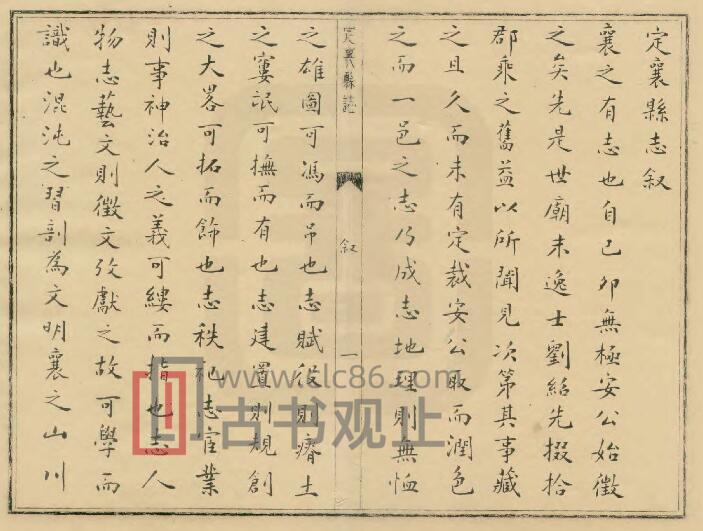 定襄縣志叙
襄之有志也自己卯無極安公始徵
之矣先是世廟末逸士劉紹先掇拾
郡乘之舊益以所聞見次第其事藏
之且久而未有定裁安公取而潤色
之而一邑之志乃成志地理則無恤
定襄縣誌
叙
一
之雄圖可馮而吊也志賦役則瘠土
之窶氓可撫而有也志建置則規創
之大畧可拓而飾也志秩祀志官業
則事神治人之義可縷而指也志人
物志藝文則徵文攷獻之故可學而
識也混沌之習剖為文明襄之山川
www.clc86.com
古书观止